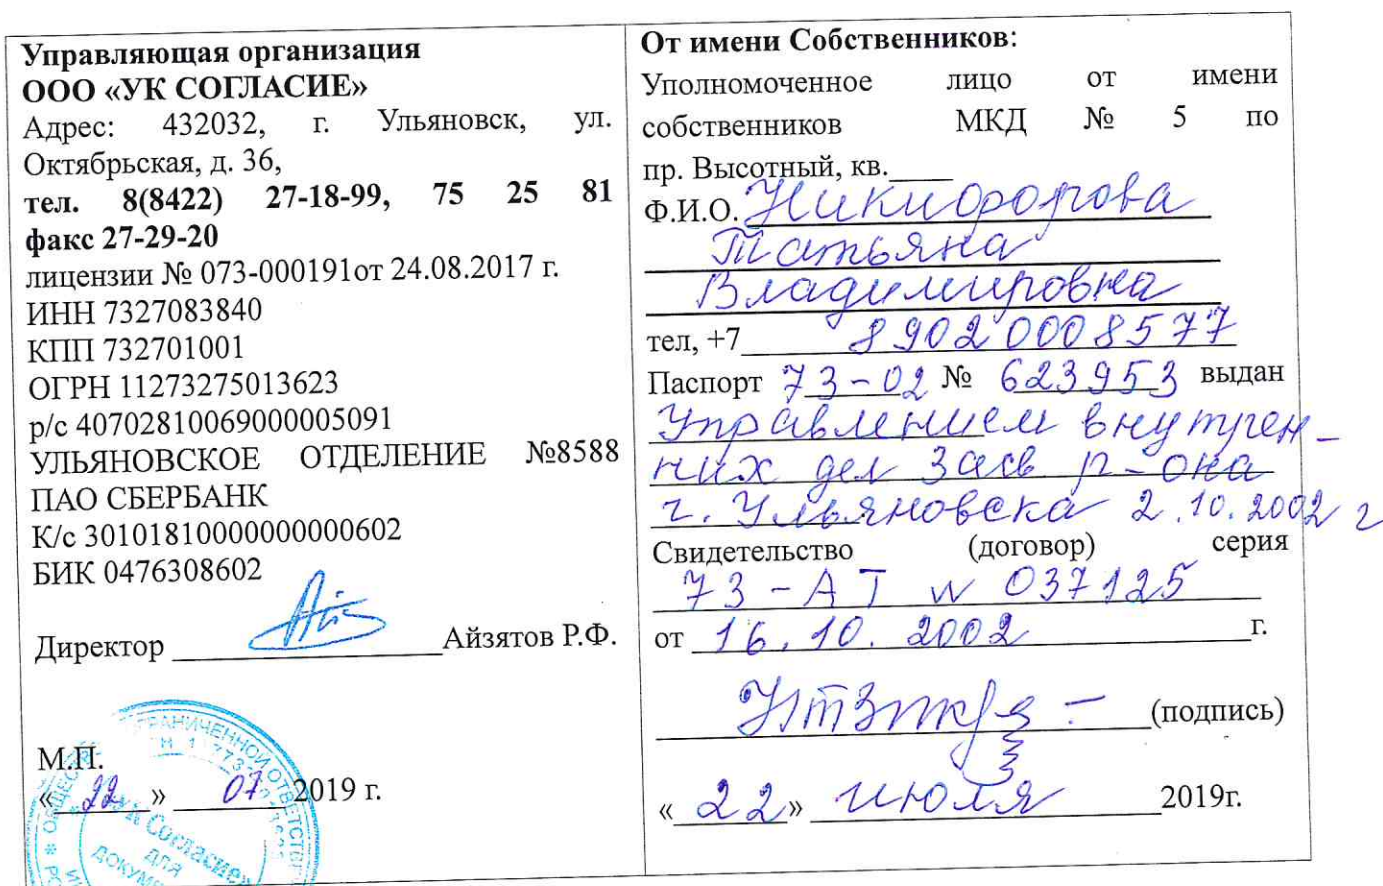 Управляющая организация
ООО «УК СОГЛАСИЕ»
Адрес: 432032, г. Ульяновск, ул.
Октябрьская, д. 36,
тел. 8(8422) 27-18-99, 75 25 81
факс 27-29-20
лицензии № 073-000191от 24.08.2017 г.
ИНН 7327083840
КПП 732701001
ОГРН 11273275013623
р/с 40702810069000005091
УЛЬЯНОВСКОЕ ОТДЕЛЕНИЕ №8588
ПАО СБЕРБАНК
К/с 30101810000000000602
БИК 0476308602
Директор Айзятов Р.Ф.
М.П.
« 22 » 07 2019 г.
УК Согласие»
для
От имени Собственников:
Уполномоченное лицо от имени
собственников МКД № 5 по
пр. Высотный, кв.
Ф.И.О. Никифорова
Татьяна
Владимировна
тел, +7 89020008577
Паспорт 73-02 № 623953 выдан
Управлением внутрен-
них дел Засв р-она
г. Ульяновска 2.10.2002 г
Свидетельство (договор) серия
73-АТ N 037125
от 16.10.2002 г.
(подпись)
« 22 » июля 2019г.